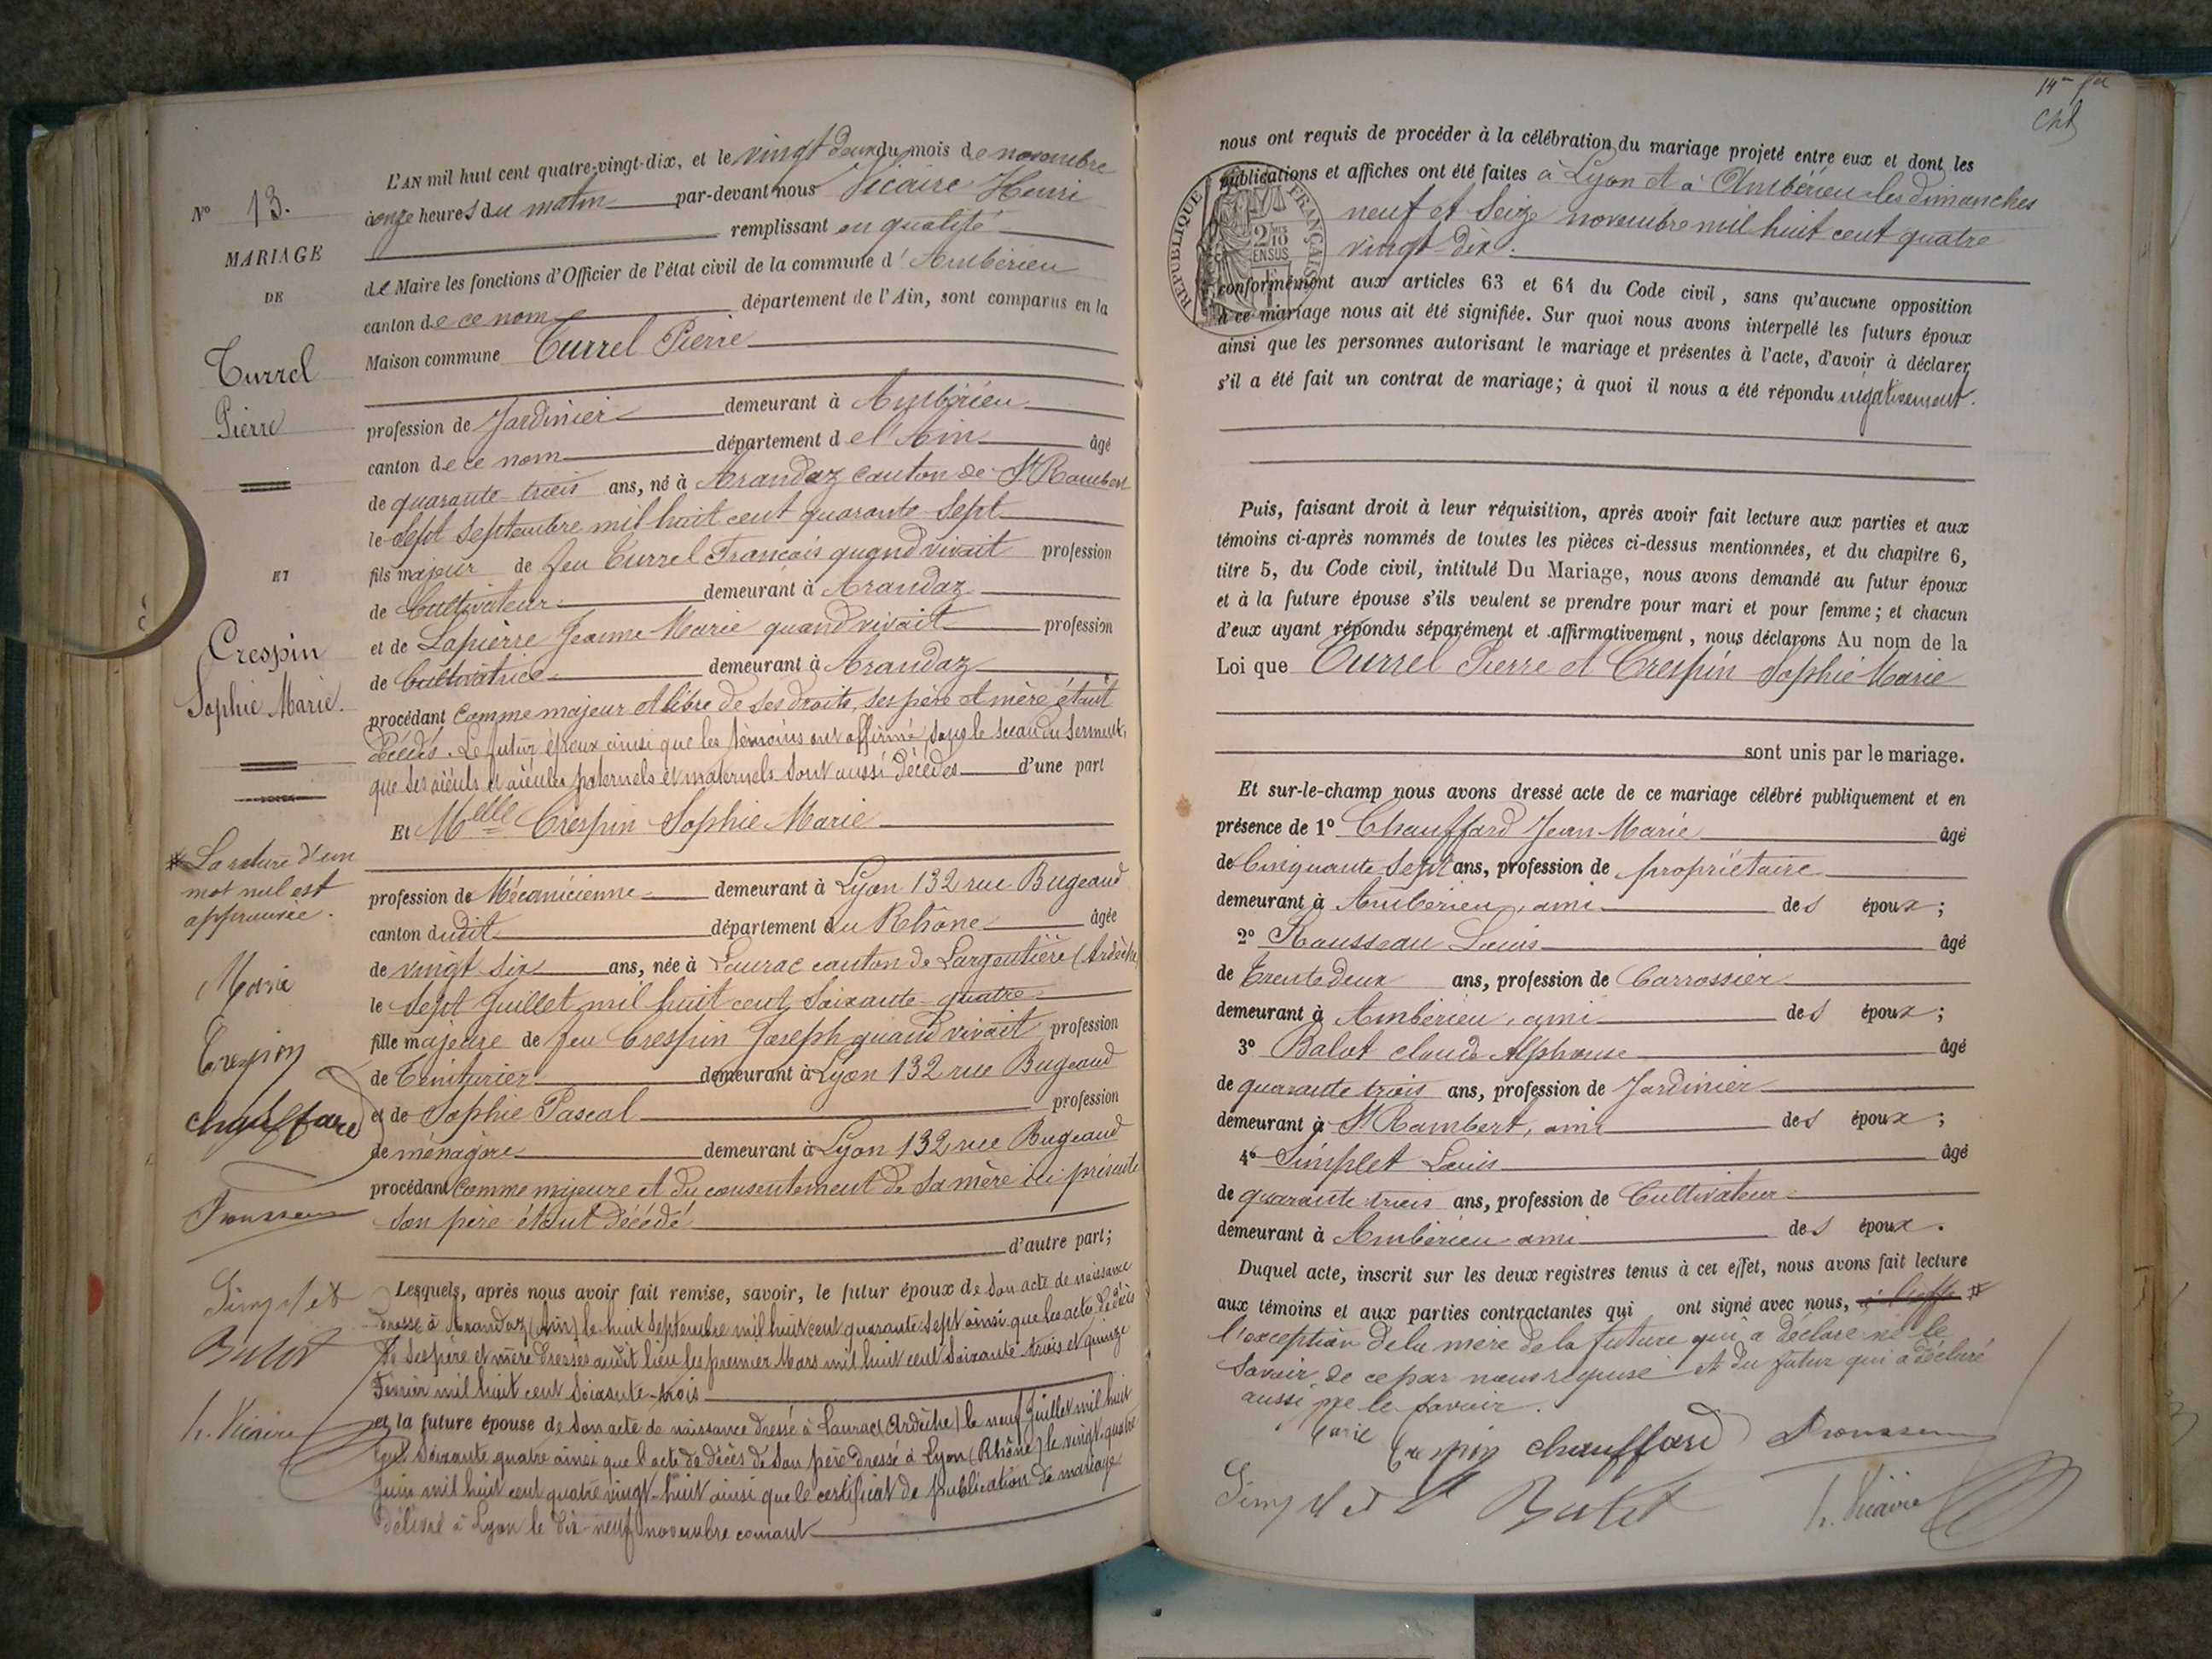 N° 13.
MARIAGE
DE
Turrel
Pierre
ET
Crespin
Sophie Marie.
* La rature d'un
mot nul est
approuvée.
Marie
Crespin
chauffard
Rousseau
Simplet
Balot
h. Vicaire
L'AN mil huit cent quatre-vingt-dix, et le vingt deux du mois de novembre
à onze heures du matin par-devant nous Vicaire Henri
remplissant en qualité
de Maire les fonctions d'Officier de l'état civil de la commune d'Ambérieu
canton de ce nom département de l'Ain, sont comparus en la
Maison commune Turrel Pierre
profession de Jardinier demeurant à Ambérieu
canton de ce nom département de l'Ain âgé
de quarante trois ans, né à Arandaz canton de St Rambert
le sept septembre mil huit cent quarante-sept
fils majeur de feu Turrel François quand vivait profession
de Cultivateur demeurant à Arandaz
et de Lapierre Jeanne Marie quand vivait profession
de Cultivatrice demeurant à Arandaz
procédant comme majeur et libre de ses droits, ses père et mère étant
décédés. Le futur époux ainsi que les témoins ont affirmé sous le sceau du serment,
que ses aïeuls et aïeules paternels et maternels sont aussi décédés d'une part
Et Melle Crespin Sophie Marie
profession de Mécanicienne demeurant à Lyon 132 rue Bugeaud
canton dudit département du Rhône âgée
de vingt six ans, née à Laurac canton de Largentière (Ardèche)
le sept Juillet mil huit cent soixante-quatre
fille majeure de feu Crespin Joseph quand vivait profession
de Teinturier demeurant à Lyon 132 rue Bugeaud
et de Sophie Pascal profession
de ménagère demeurant à Lyon 132 rue Bugeaud
procédant comme majeure et du consentement de sa mère ici présente
son père étant décédé
d'autre part;
Lesquels, après nous avoir fait remise, savoir, le futur époux de son acte de naissance
dressé à Arandaz (Ain) le huit septembre mil huit cent quarante sept ainsi que les actes de décès
de ses père et mère dressés audit lieu les premier Mars mil huit cent soixante-trois et quinze
Février mil huit cent soixante-trois
et la future épouse de son acte de naissance dressé à Laurac (Ardèche) le neuf Juillet mil huit
cent soixante quatre ainsi que l'acte de décès de son père dressé à Lyon (Rhône) le vingt-quatre
Juin mil huit cent quatre vingt-huit ainsi que le certificat de publication de mariage
délivré à Lyon le dix-neuf novembre courant
nous ont requis de procéder à la célébration du mariage projeté entre eux et dont les
publications et affiches ont été faites à Lyon et à Ambérieu les dimanches
neuf et seize novembre mil huit cent quatre
vingt-dix.
RÉPUBLIQUE FRANÇAISE
2/10 EN SUS
conformément aux articles 63 et 64 du Code civil, sans qu'aucune opposition
à ce mariage nous ait été signifiée. Sur quoi nous avons interpellé les futurs époux
ainsi que les personnes autorisant le mariage et présentes à l'acte, d'avoir à déclarer
s'il a été fait un contrat de mariage; à quoi il nous a été répondu négativement.
Puis, faisant droit à leur réquisition, après avoir fait lecture aux parties et aux
témoins ci-après nommés de toutes les pièces ci-dessus mentionnées, et du chapitre 6,
titre 5, du Code civil, intitulé Du Mariage, nous avons demandé au futur époux
et à la future épouse s'ils veulent se prendre pour mari et pour femme; et chacun
d'eux ayant répondu séparément et affirmativement, nous déclarons Au nom de la
Loi que Turrel Pierre et Crespin Sophie Marie
sont unis par le mariage.
Et sur-le-champ nous avons dressé acte de ce mariage célébré publiquement et en
présence de 1° Chauffard Jean Marie âgé
de Cinquante sept ans, profession de propriétaire
demeurant à Ambérieu, ami des époux;
2° Rousseau Louis âgé
de Trente deux ans, profession de Carrossier
demeurant à Ambérieu, ami des époux;
3° Balot claude Alphonse âgé
de quarante trois ans, profession de Jardinier
demeurant à St Rambert, ami des époux;
4° Simplet Louis âgé
de quarante trois ans, profession de Cultivateur
demeurant à Ambérieu ami des époux.
Duquel acte, inscrit sur les deux registres tenus à cet effet, nous avons fait lecture
aux témoins et aux parties contractantes qui ont signé avec nous, *
l'exception de la mère de la future qui a déclaré ne le
savoir de ce par nous requise et du futur qui a déclaré
aussi ne le savoir.
Marie Crespin chauffard Rousseau
Simplet L Balot h. Vicaire